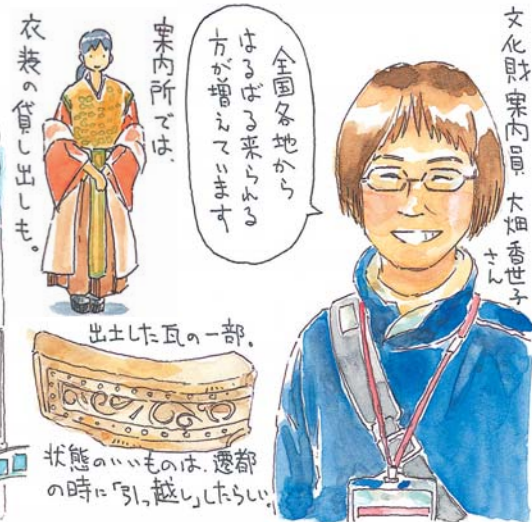 文化財案内員 大畑香世子さん
全国各地から
はるばる来られる
方が増えています
案内所では、
衣装の貸し出しも。
出土した瓦の一部。
状態のいいものは、遷都
の時に「引っ越し」したらしい。